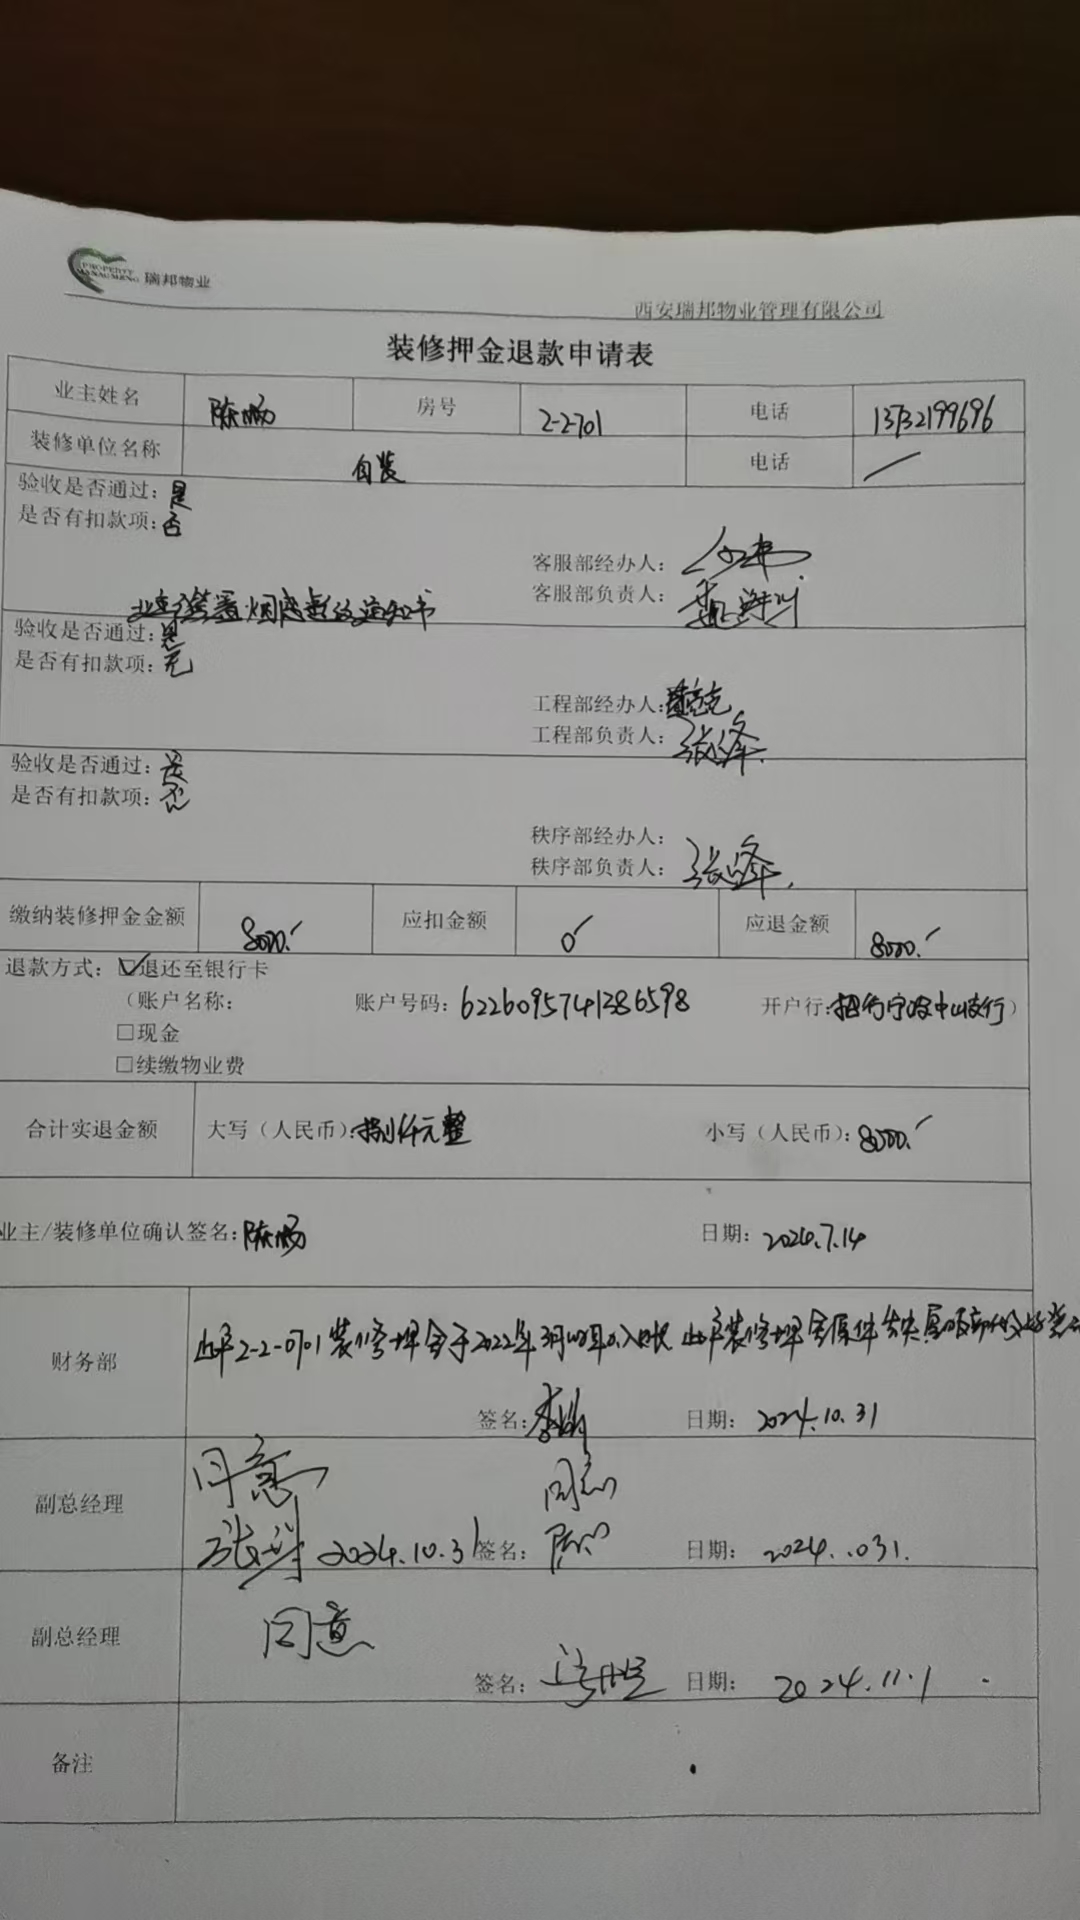 PROPERTY
MANAGMENG 瑞邦物业
西安瑞邦物业管理有限公司
装修押金退款申请表
业主姓名 陈畅 房号 2-2-701 电话 13732199696
装修单位名称 自装 电话 /
验收是否通过：是
是否有扣款项：否
客服部经办人：
客服部负责人：
业主签署烟感 通知书
验收是否通过：是
是否有扣款项：无
工程部经办人：
工程部负责人：张峰
验收是否通过：是
是否有扣款项：否
秩序部经办人：
秩序部负责人：张峰
缴纳装修押金金额 8000. 应扣金额 0 应退金额 8000.
退款方式：☑退还至银行卡
（账户名称： 账户号码：6226095741386598 开户行：招行宁波中山支行）
□现金
□续缴物业费
合计实退金额 大写（人民币）：捌仟元整 小写（人民币）：8000.
业主/装修单位确认签名：陈畅 日期：2024.7.14
财务部 此户2-2-0701装修押金于2022年3月 入账 此户装修押金原件丢失
签名：李 日期：2024.10.31
副总经理 同意 同意
张 2024.10.31 签名： 日期：2024..031.
副总经理 同意
签名： 日期：2024.11.1
备注